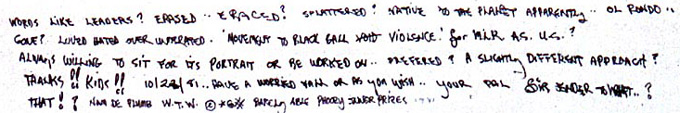 WORDS LIKE LEADERS? ERASED.. ERACED? SPLATTERED? NATIVE TO THE PLANET APPARENTLY.. OL RONDO..
GONE? LOVED HATED OVER UNDERRATED. 'MOVEMENT TO BLACK BALL VOID VIOLENCE.' for AS. U.S.?
ALWAYS WILLING TO SIT FOR ITS PORTRAIT OR BE WORKED ON.. PREFERED? A SLIGHTLY DIFFERENT APPROACH?
THANKS!! KIDS!! 10/28/81.. HAVE A WORRIED OR AS YOU WISH.. YOUR PAL
THAT!? NOM DE PLUME W.T.W. © BARELY ABLE PRIZES